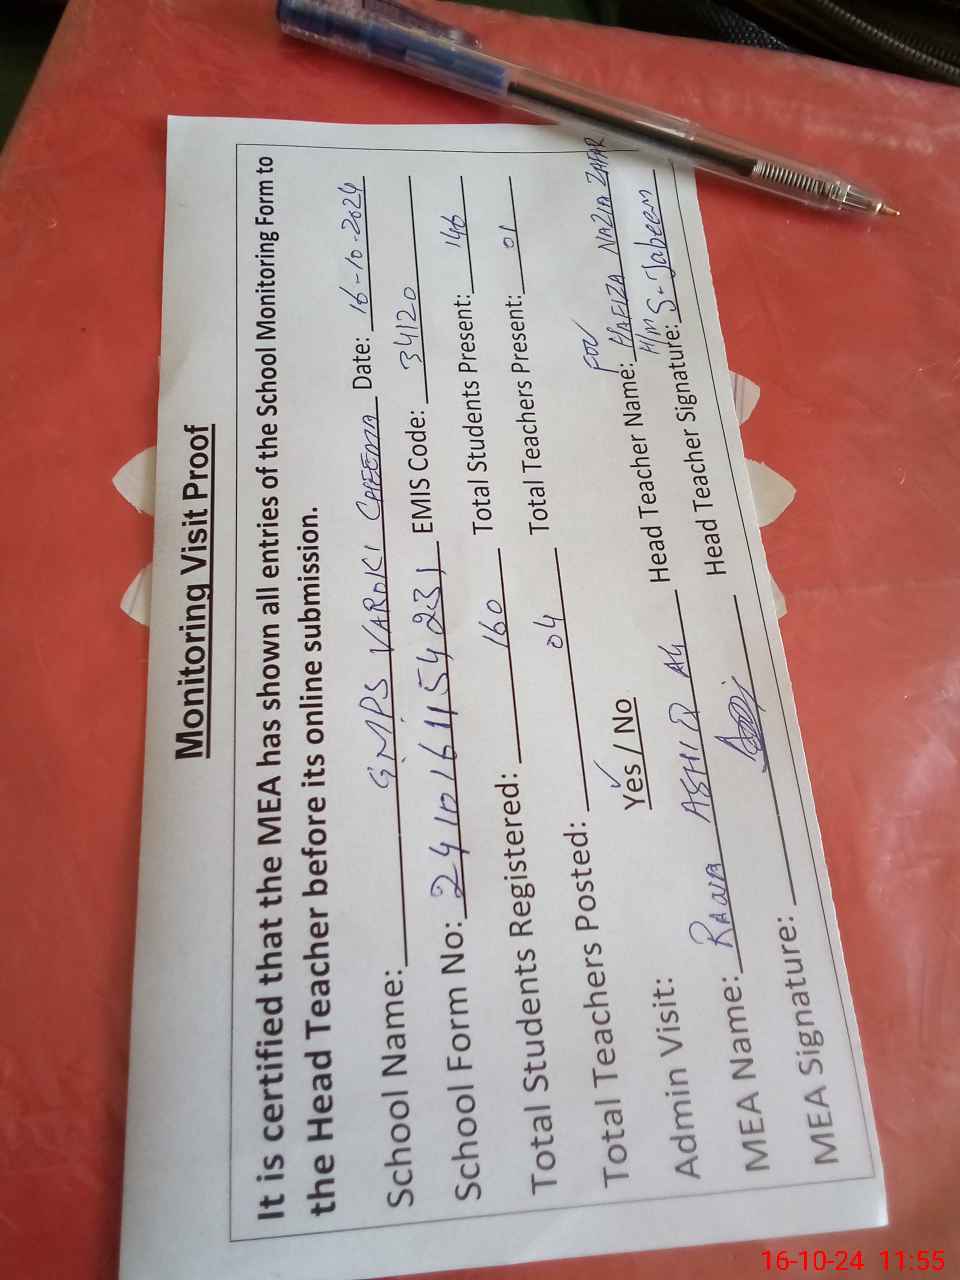 Monitoring Visit Proof
It is certified that the MEA has shown all entries of the School Monitoring Form to
the Head Teacher before its online submission.
School Name: GMPS VAROKI CHEEMA Date: 16-10-2024
School Form No: 24101611154231 EMIS Code: 34120
Total Students Registered: 160 Total Students Present: 146
Total Teachers Posted: 04 Total Teachers Present: 01
Admin Visit: Yes / No
for
Head Teacher Name: HAFIZA NAZIA ZAFAR
MEA Name: RANA ASHIQ Ali
Head Teacher Signature: S-Jabeem
MEA Signature:
16-10-24 11:55